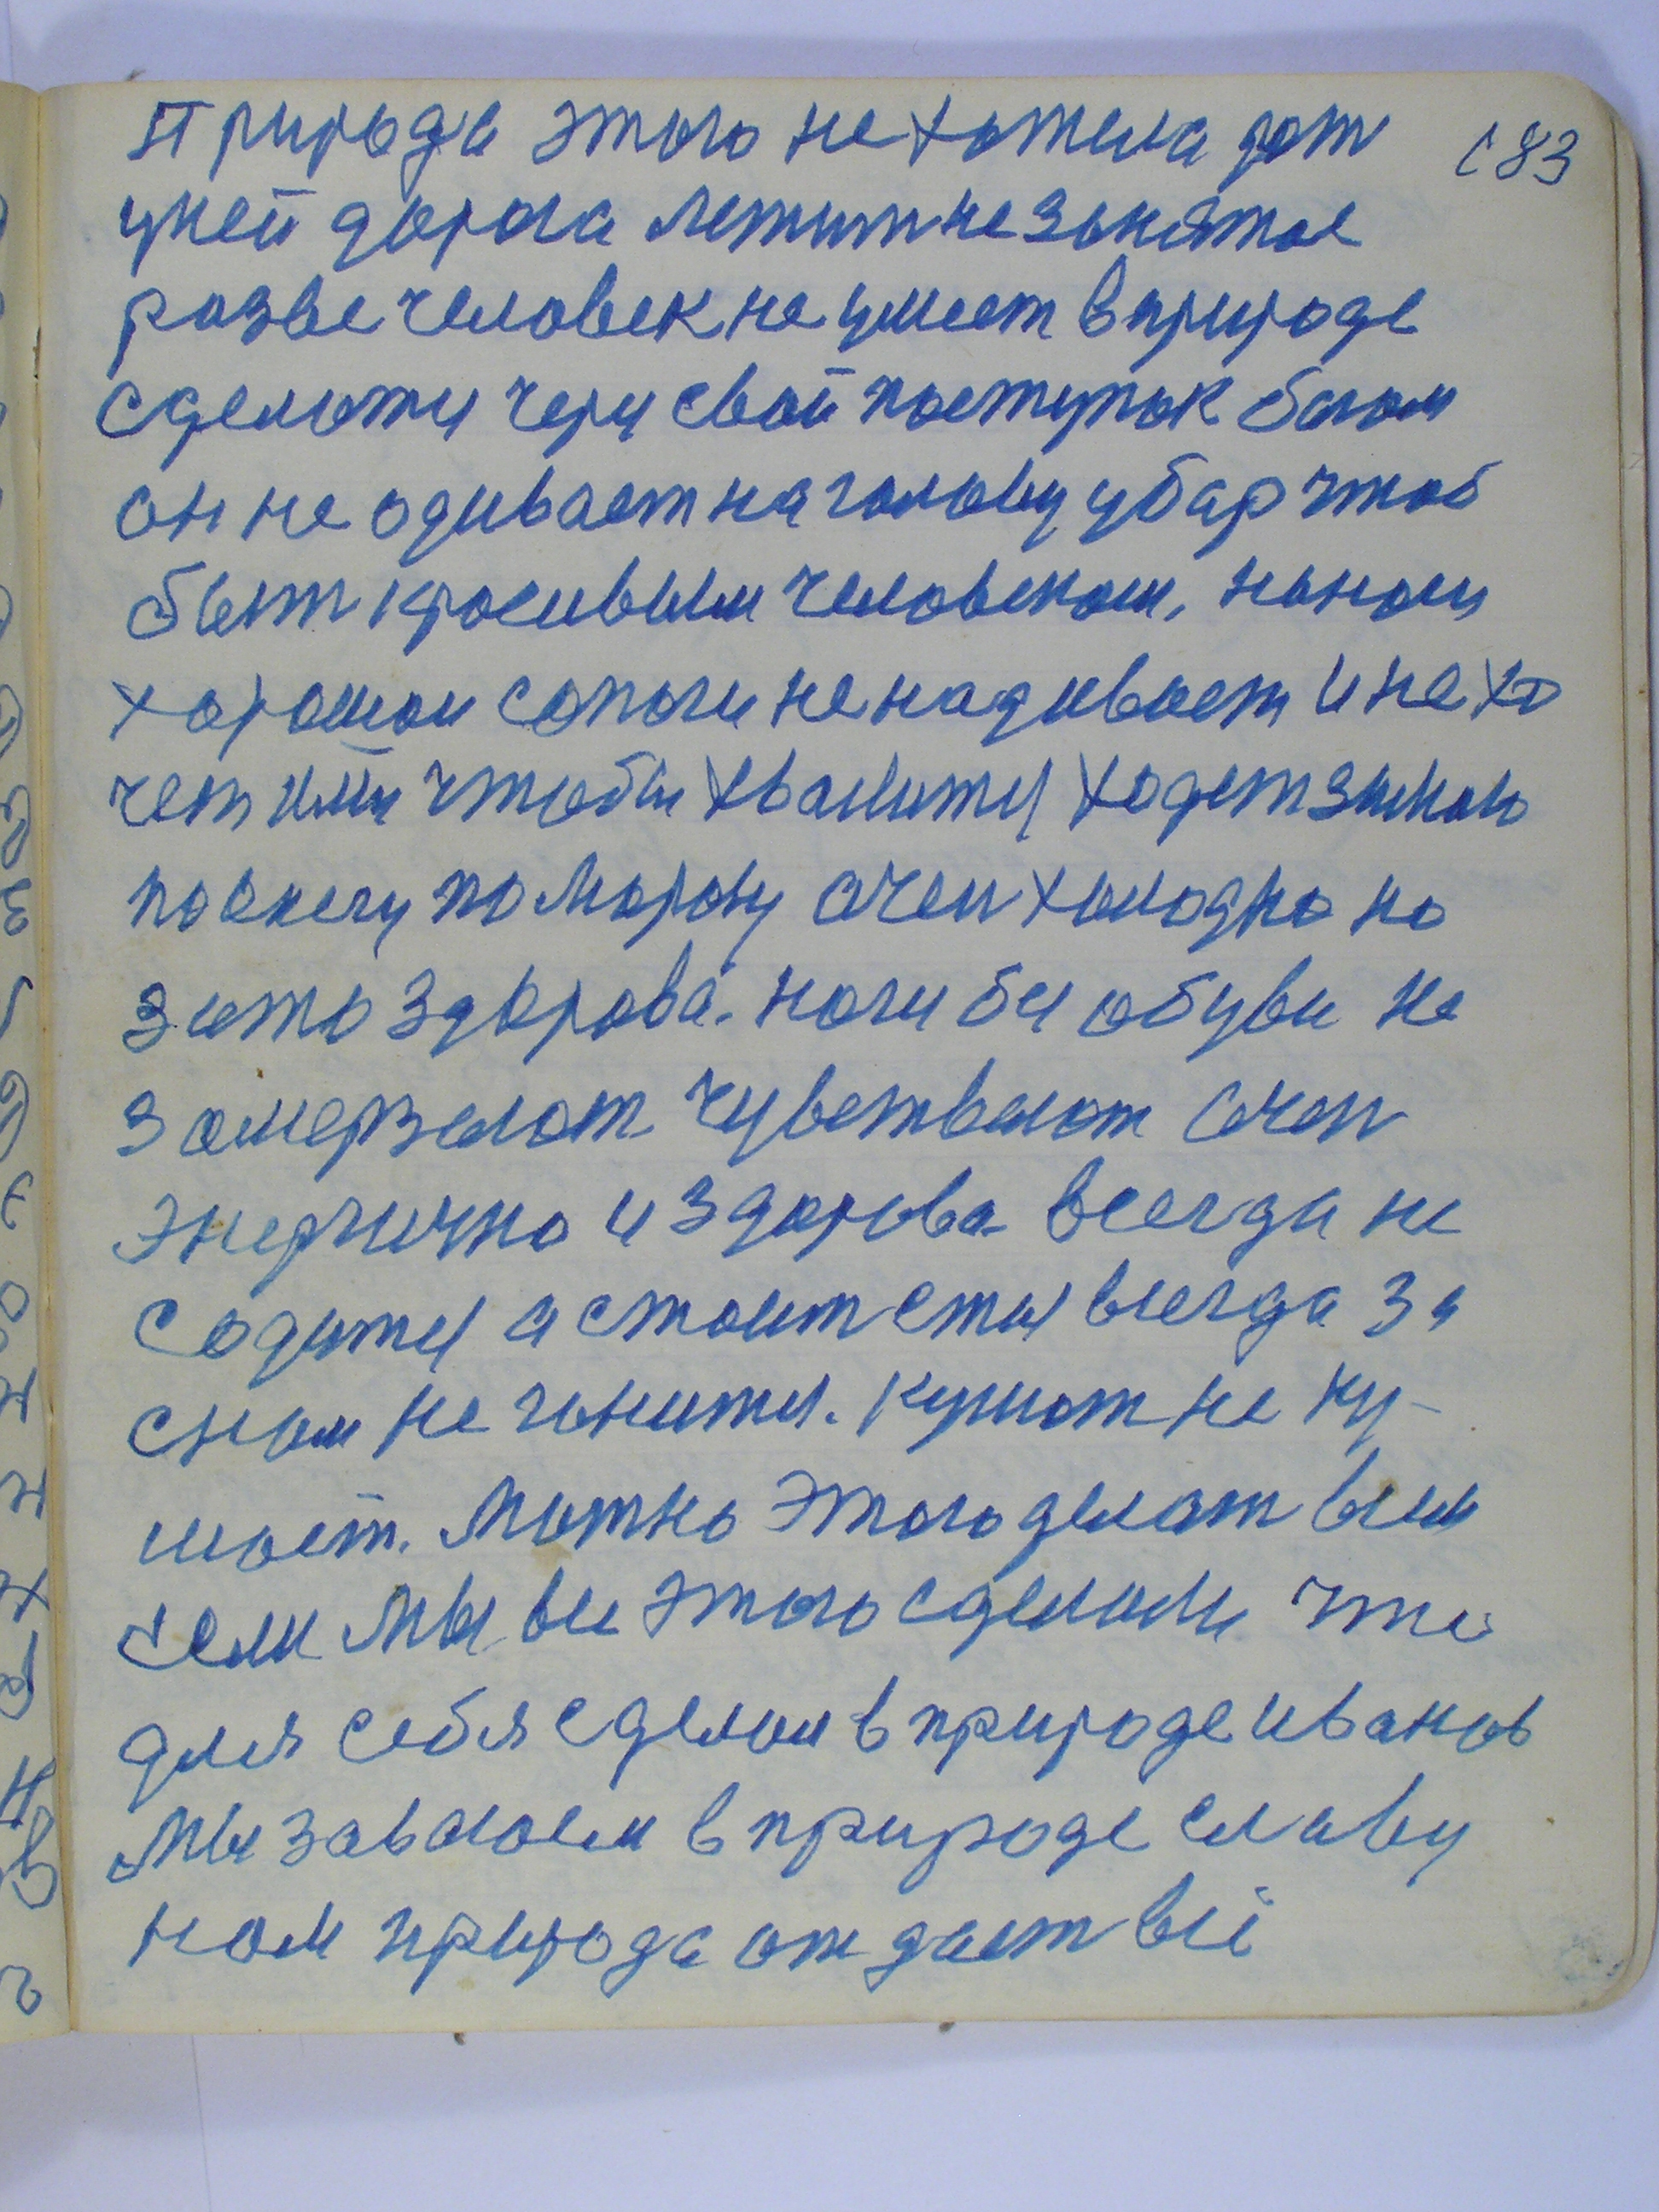 природа этого не хотела дат
уней дорога летит не занятое
разве человек не умеет в природе
сделоти чери свой поступок богом
он не одивает на голову убар чтоб
быт красивым человеком, наногу
харошои сапоги не надивает и не хо
чет ими чтобы хвалитя ходет зимою
по снегу по морозу очен холодно но
зато здорова. ноги би обуви не
замерзают чувствеют очен
энергично и здорова всегда не
содитя а стоит стоя всегда за
сном не гонитя. кушат не ку-
шает. Можно этого делат всем
если мы все этого сделаим что
для себя сделал в природе иванов
мы заваюем в природе славу
нам природа отдаст всё
183